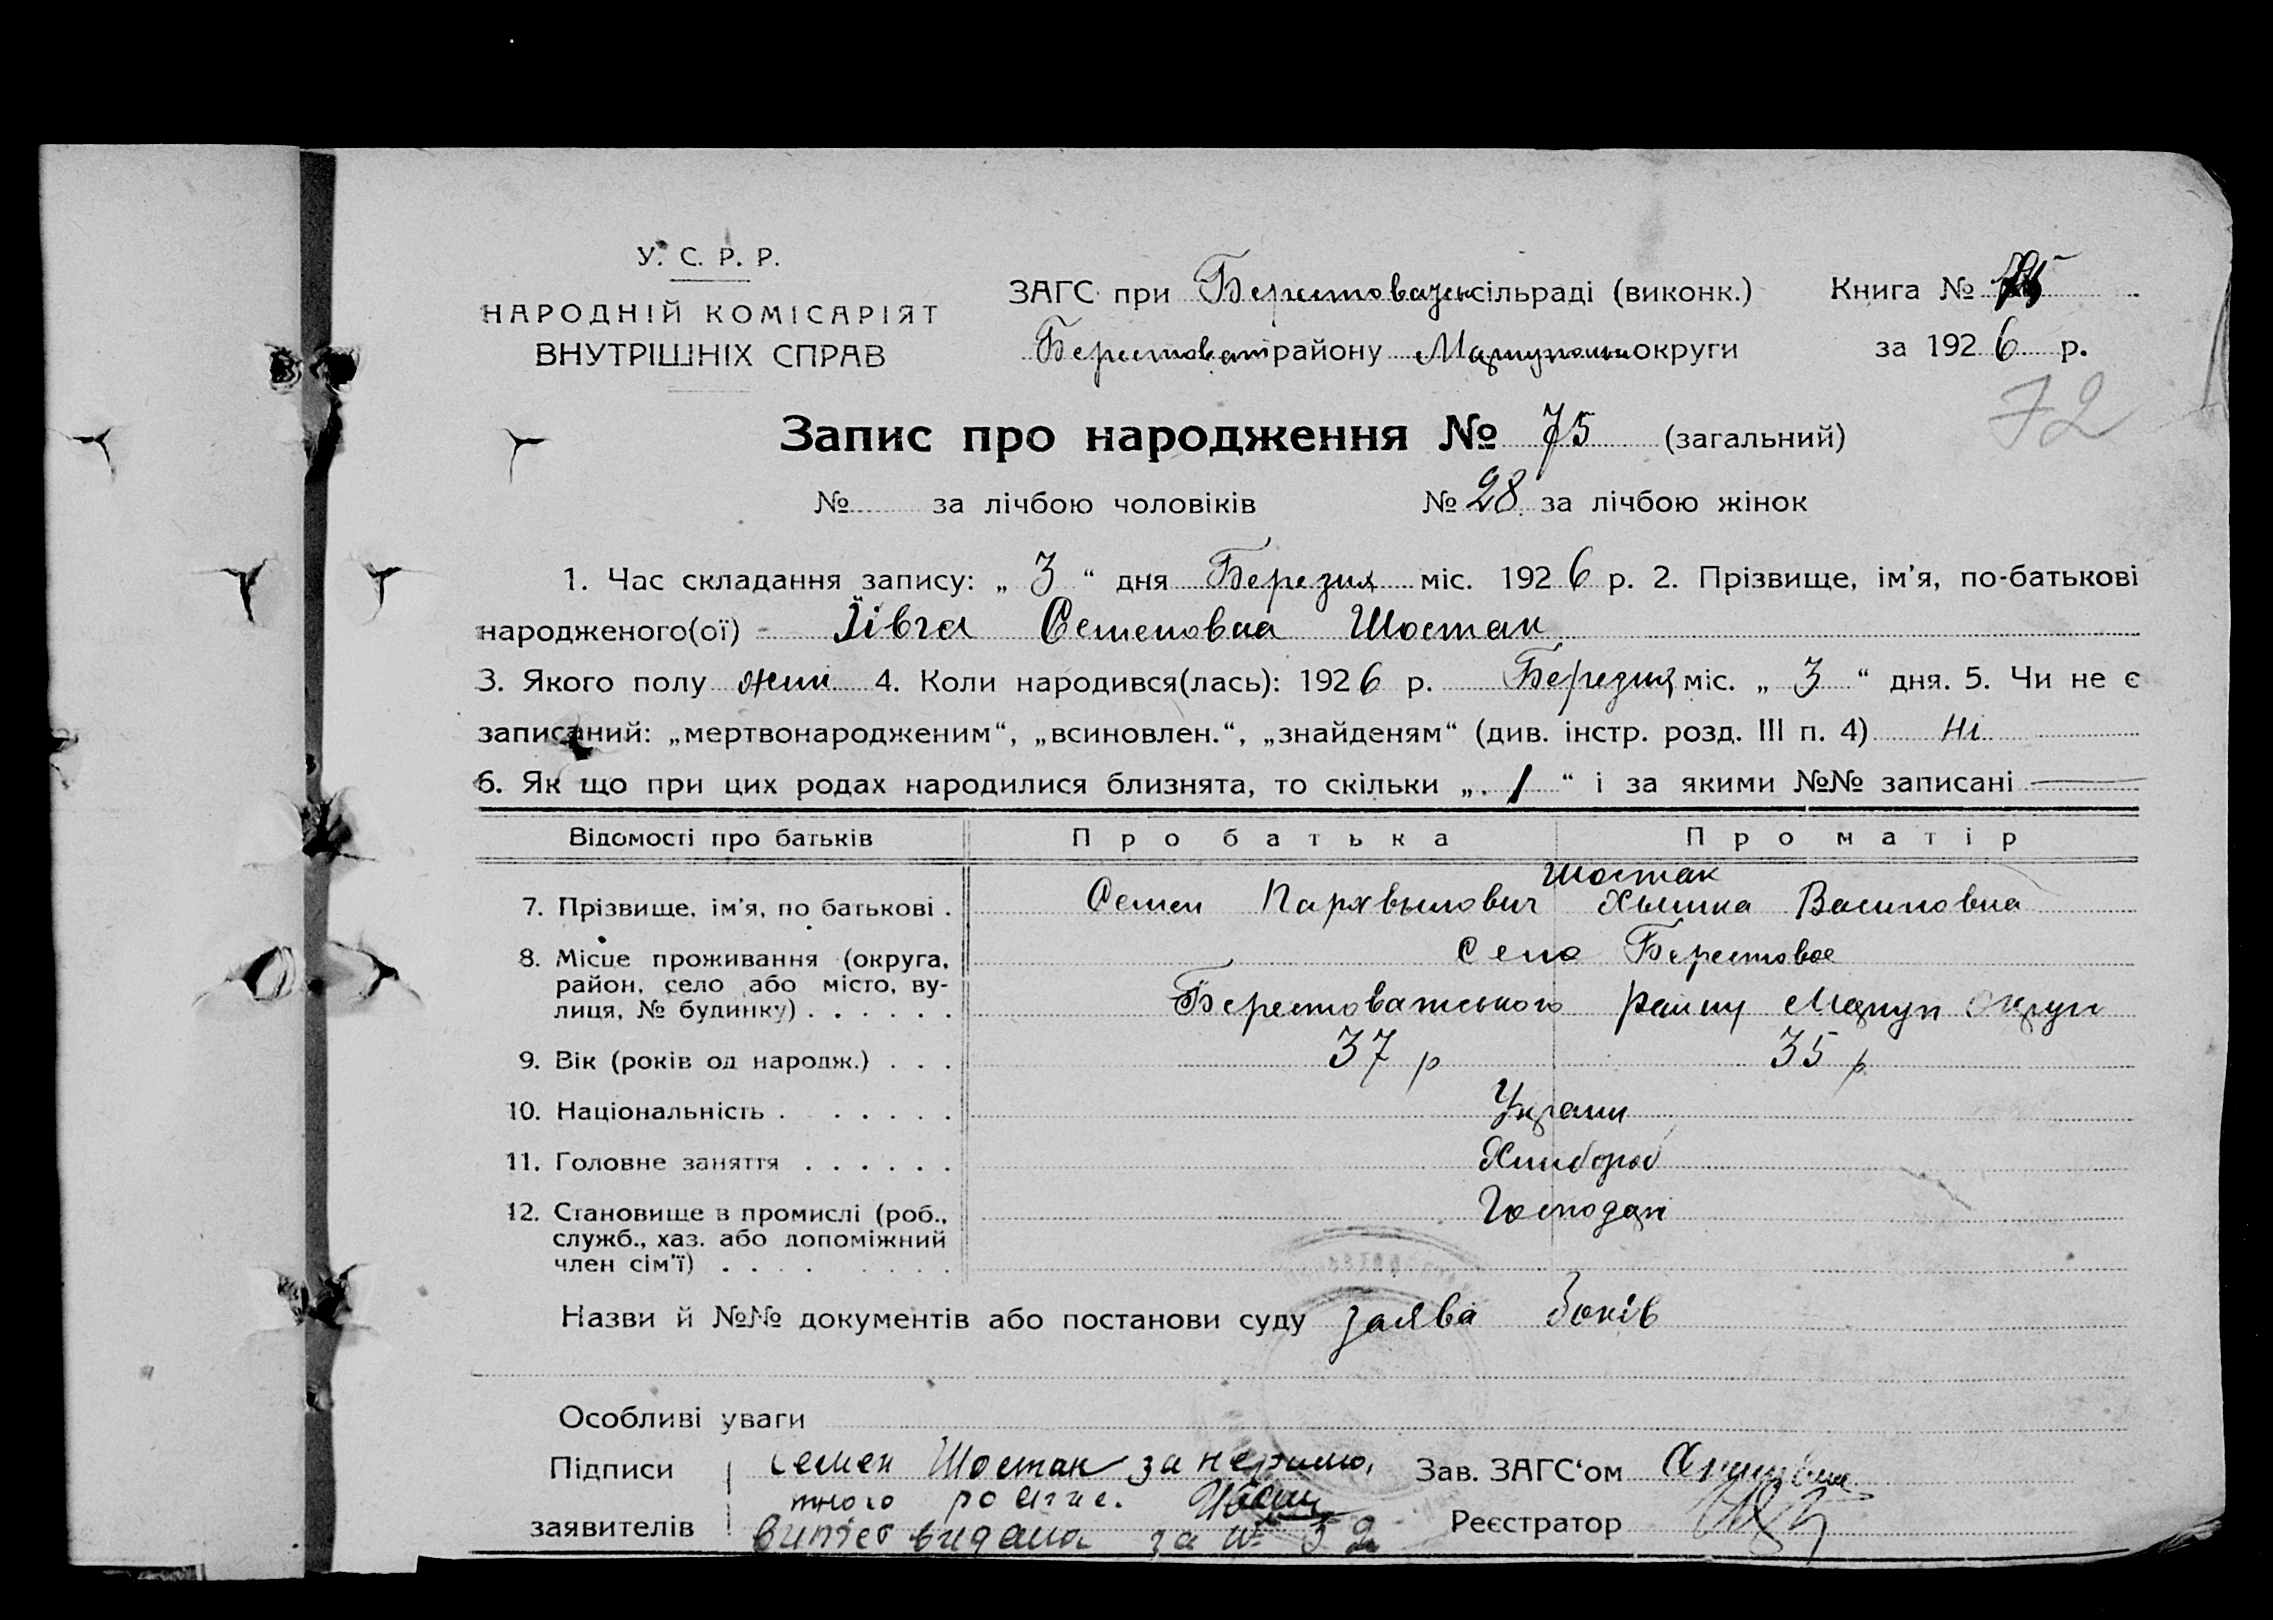 У. С. Р. Р.
НАРОДНІЙ КОМІСАРІЯТ
ВНУТРІШНІХ СПРАВ
ЗАГС при сільраді (виконк.)
району округи
Книга № 75
за 1926 р.
72
Запис про народження № 75 (загальний)
№ за лічбою чоловіків № 28 за лічбою жінок
1. Час складання запису: „ 3 “ дня Березня міс. 1926 р. 2. Прізвище, ім’я, по-батькові
народженого(ої) Семеновна Шостак
3. Якого полу жин 4. Коли народився(лась): 1926 р. Березня міс. „ 3 “ дня. 5. Чи не є
записаний: „мертвонародженим“, „всиновлен.“, „знайденям“ (див. інстр. розд. III п. 4) Ні
6. Як що при цих родах народилися близнята, то скільки „ / “ і за якими №№ записані —
Відомості про батьків Про батька Про матір
Шостак
7. Прізвище, ім’я, по батькові . Семен Василовна
8. Місце проживання (округа, Село Берестовое
район, село або місто, ву-
лиця, № будинку) . . . . . . Берестоватського Маріуп округи
9. Вік (років од народж.) . . . 37 р 35 р
10. Національність . . . . . . Украин
11. Головне заняття . . . . . . Хлибороб
12. Становище в промислі (роб., Господарі
служб., хаз. або допоміжний
член сім’ї) . . . . . . . .
Назви й №№ документів або постанови суду заява
Особливі уваги
Підписи Семен Шостак за неграмо
тного
заявителів видана за № 52
Зав. ЗАГС‘ом
Реєстратор